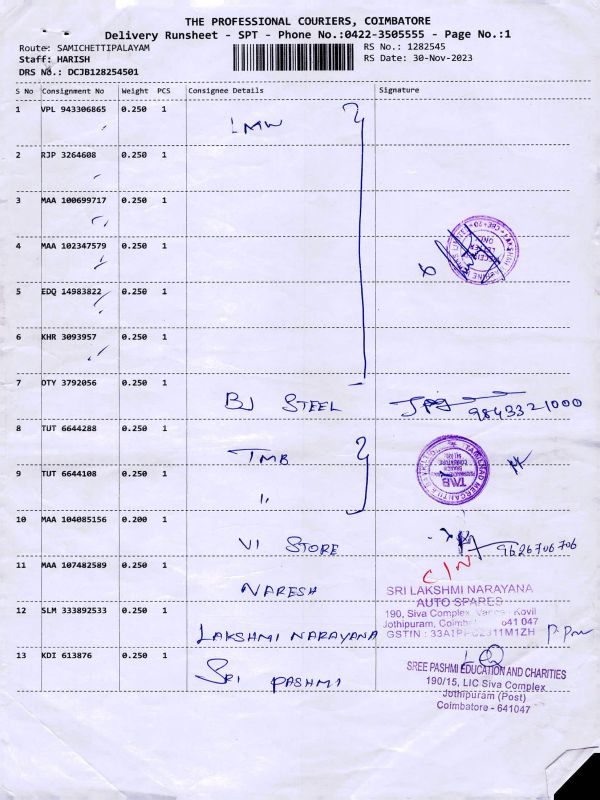 THE PROFESSIONAL COURIERS, COIMBATORE
Delivery Runsheet - SPT - Phone No.:0422-3505555 - Page No.:1
Route: SAMICHETTIPALAYAM RS No.: 1282545
Staff: HARISH RS Date: 30-Nov-2023
DRS No.: DCJB128254501
S No Consignment No Weight PCS Consignee Details Signature
1 VPL 943306865 0.250 1 LMW
2 RJP 3264608 0.250 1
3 MAA 100699717 0.250 1
4 MAA 102347579 0.250 1
5 EDQ 14983822 0.250 1
6 KHR 3093957 0.250 1
7 DTY 3792056 0.250 1 BJ STEEL 9843321000
8 TUT 6644288 0.250 1 TMB
TAMILNAD MERCANTILE BANK LTD
TMB
COIMBATORE
9 TUT 6644108 0.250 1 "
10 MAA 104085156 0.200 1 VI STORE 9626706706
11 MAA 107482589 0.250 1 NARESH C/N
SRI LAKSHMI NARAYANA
AUTO SPARES
12 SLM 333892533 0.250 1 LAKSHMI NARAYANA
190, Siva Complex, Kovil
Jothipuram, 641 047
GSTIN :
13 KDI 613876 0.250 1 SRI PASHMI
SREE PASHMI EDUCATION AND CHARITIES
190/15, LIC Siva Complex
Jothipuram (Post)
Coimbatore - 641047